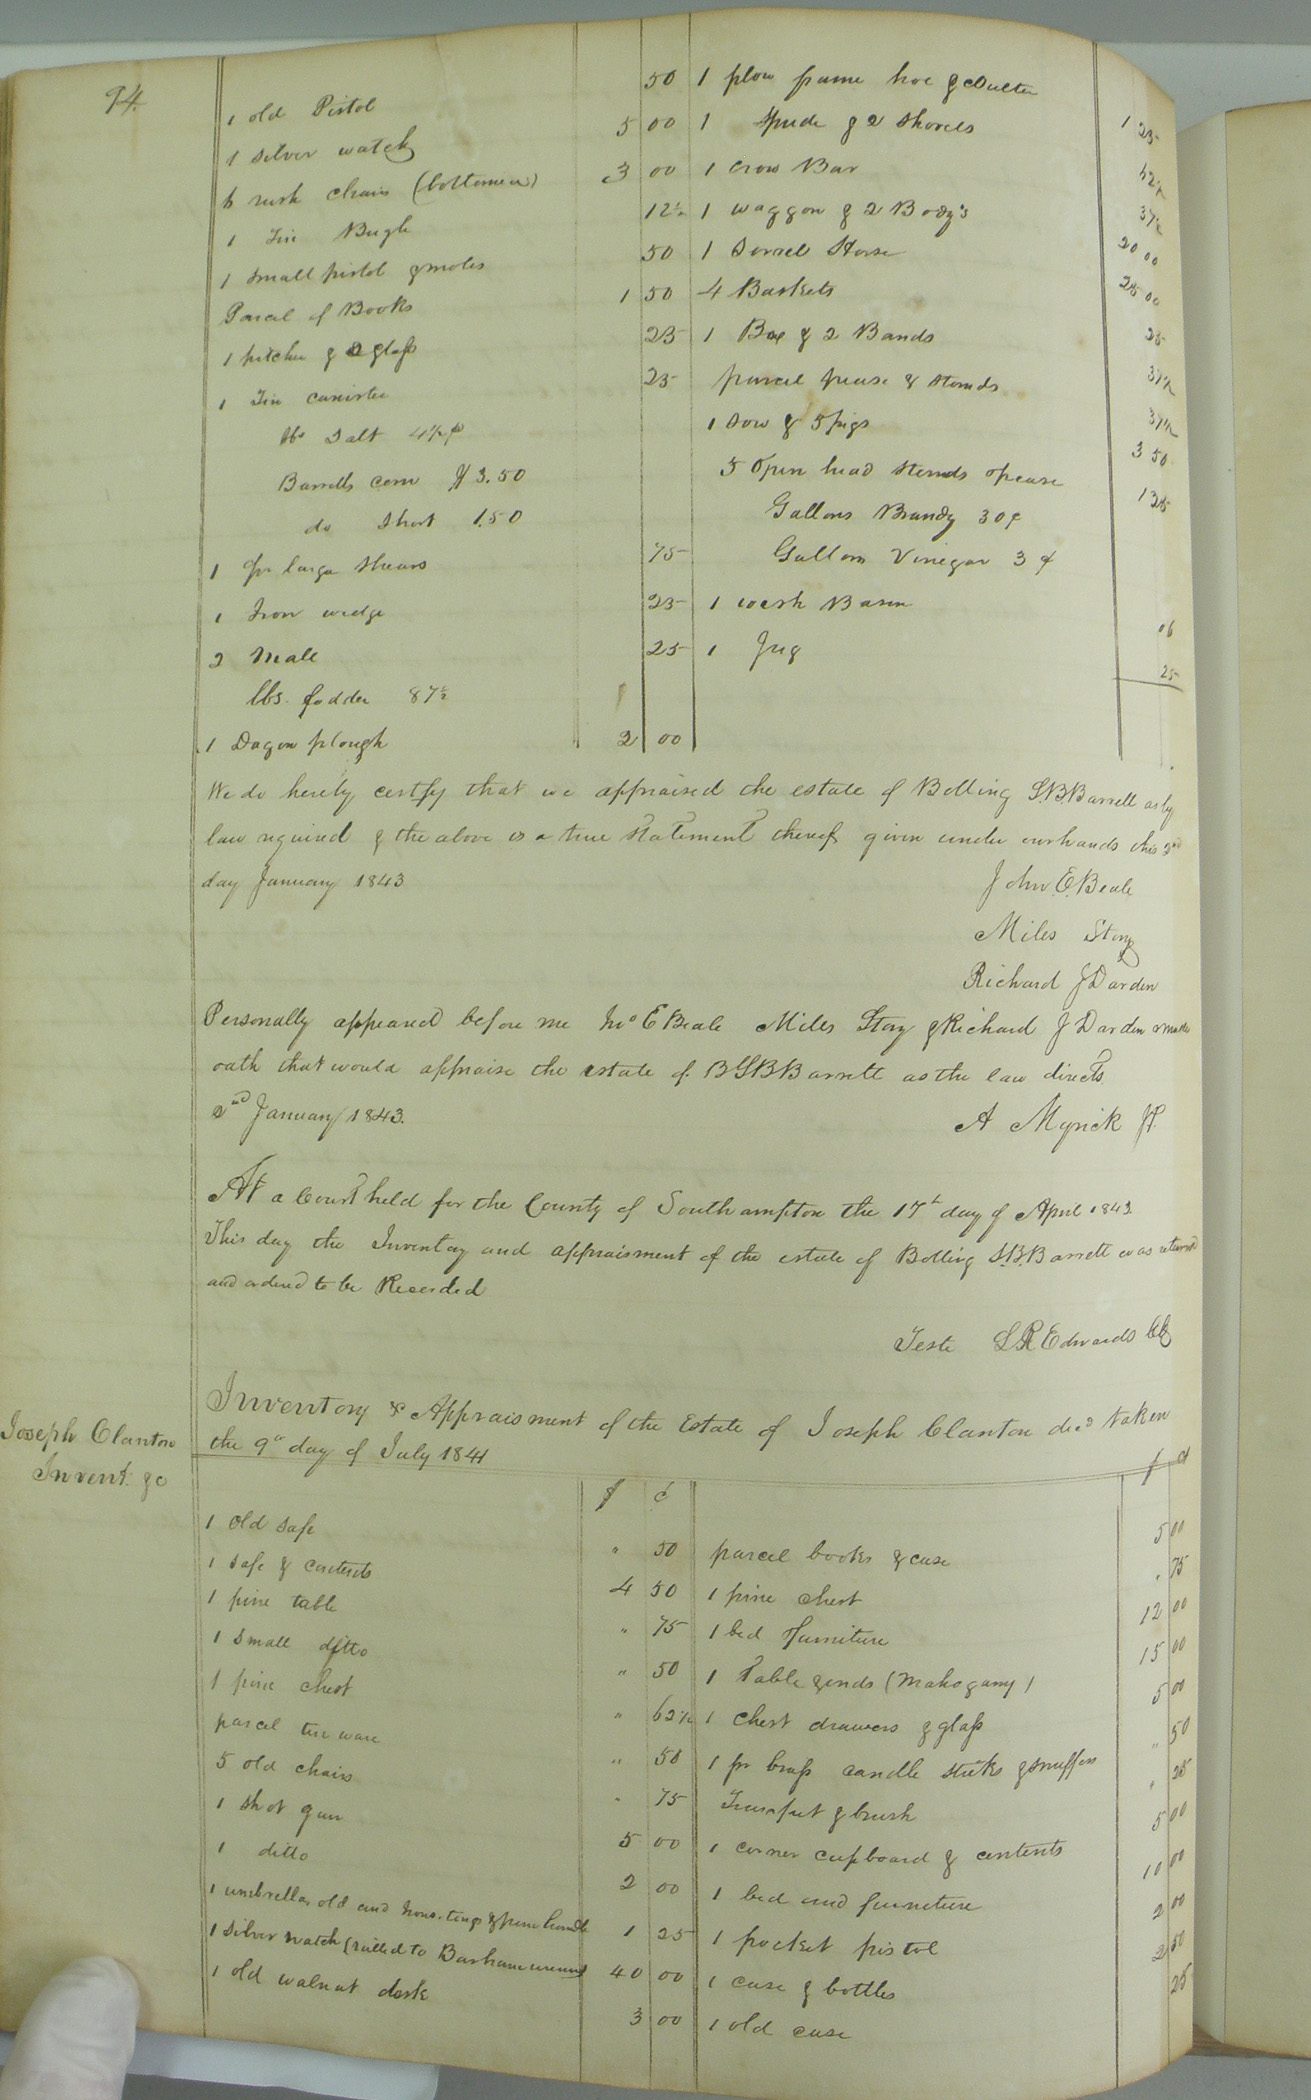 94.
1 old Pistol 50
1 silver watch 5 00
6 rush chairs (bottomed) 3 00
1 Tin Bugle 12½
1 small pistol & molds 50
Parcel of Books 1 50
1 pitcher & 2 glass 25
1 Tin canister 25
lbs Salt 4½ ¢
Barrells corn $3.50
do Short 1.50
1 pr large Shears 75
1 Iron wedge 25
2 Male 25
lbs. fodder 87½
1 Dagon plough 2 00
1 plow frame hoe & Coulter 1 25
1 Spade & 2 Shovels 62½
1 Crow Bar 37½
1 waggon & 2 Body's 20 00
1 Sorrel Horse 25 00
4 Baskets 25
1 Box & 2 Bands 37½
parcel pease & Stands 37½
1 Sow & 5 pigs 3 50
5 Open head Stands 1 25
Gallons Brandy 30 ¢
Gallons Vinegar 3 ¢
1 wash Basin 06
1 Jug 25
We do hereby certify that we appraised the estate of Bolling S.B. Barrett as by
law required & the above is a true Statement thereof given under our hands this 2nd
day January 1843
John E. Beale
Miles Story
Richard J Darden
Personally appeared before me Jno E Beale Miles Story & Richard J Darden & made
oath that would appraise the estate of B S B Barrett as the law directs
2nd January 1843.
A Myrick JP.
At a Court held for the County of Southampton the 17th day of April 1843
This day the Inventory and appraisment of the estate of Bolling S.B. Barrett was returned
and ordered to be Recorded
Teste L R Edwards Clk
Joseph Clanton
Invent. &c
Inventory & Appraisment of the Estate of Joseph Clanton decd taken
the 9th day of July 1841
$ ¢
1 old safe " 50
1 safe & contents 4 50
1 pine table " 75
1 small ditto " 50
1 pine chest " 62½
parcel tin ware " 50
5 old chairs " 75
1 shot gun 5 00
1 ditto 2 00
1 umbrella, old and 1 25
1 silver watch ( to Barham 40 00
1 old walnut desk 3 00
$ ¢
parcel books & case 5 00
1 pine chest " 75
1 bed furniture 12 00
1 Table & ends (Mahogany) 15 00
1 chest drawers & glass 5 00
1 pr brass candle sticks & snuffers " 50
& brush " 25
1 corner cupboard & contents 5 00
1 bed and furniture 10 00
1 pocket pistol 2 00
1 case & bottles 2 50
1 old case 25